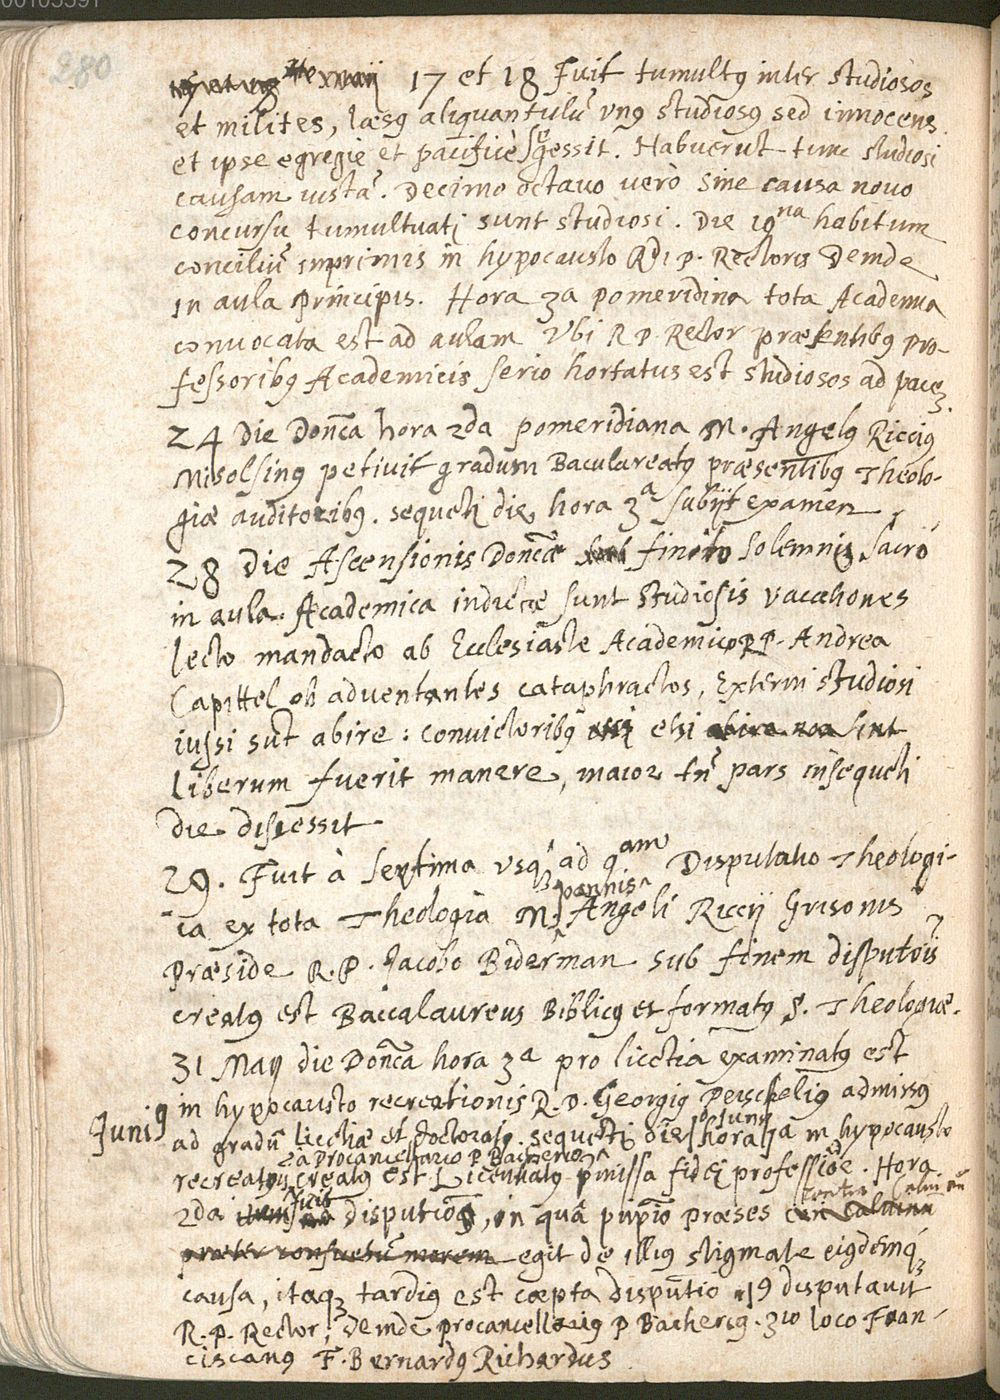 280
17 et 18 Fuit tumultꝰ inter studiosos
et milites, læsꝰ aliquantulũ vnꝰ studiosꝰ sed innocens
et ipse egregie et pacifice se gessit. Habuerũt tunc studiosi
causam iustã. Decimo octauo verò sine causa nouo
concursu tumultuati sunt studiosi. Die 19na habitum
conciliũ imprimis in hypocausto Rdi P. Rectoris Deinde
in aula Principis. Hora 3a pomeridina tota Academia
conuocata est ad aulam Vbi R P Rector præsentibꝰ pro-
fessoribꝰ Academicis serio hortatus est studiosos ad pacẽ.
24 Die Donc̃a hora 2da pomeridiana M. Angelꝰ Ricciꝰ
Misolsinꝰ petiuit gradum Baculareatꝰ præsentibꝰ Theolo-
giæ auditoribꝰ. sequẽti die hora 3a subijt examen
28 Die Ascensionis Donc̃æ finito solemni sacro
in aula Academica indictæ sunt studiosis vacationes
lecto mandacto ab Ecclesiaste Academico R P. Andrea
Capittel ob aduentantes cataphractos, Externi studiosi
iussi sũt abire: conuictoribꝰ etsi abire non sint
liberum fuerit manere, maior tñ pars insequẽti
die discessit.
29. Fuit à septima vsqꝫ ad qam Disputatio Theologi-
ca ex tota Theologia M. Joannis Angeli Riccij Grisonis
Præside R.P. Jacobo Biderman sub finem disputõis
creatꝰ est Baccalaureus Biblicꝰ et formatꝰ S. Theologiæ.
31 Maij die Donc̃a hora 3a pro licẽtia examinatꝰ est
in hypocausto recreationis R.D. Georgiꝰ admissꝰ
Juniꝰ ad gradũ licẽtiæ et doctoratꝰ. sequẽti die hora 1a in hypocausto
a Procancellario P Bacherio
recreatõis creatꝰ est Licentiatꝰ pmissa fidei professiõe. Hora
fuit contra
2da disputiõ, in quã Præses
præter consuetũ morem egit de illiꝰ stigmate eiꝰdemqꝫ
causa, itaqꝫ tardiꝰ est cæpta disputio 1ꝰ disputauit
R.P. Rector, deinde procancellariꝰ P Bacheriꝰ. 3io loco Fran-
ciscanꝰ F. Bernardꝰ Richardus